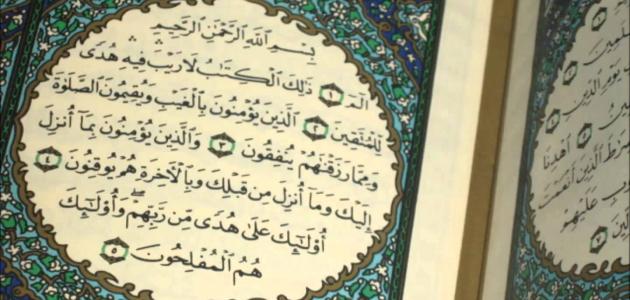 بِسْمِ ٱللَّهِ ٱلرَّحْمَٰنِ ٱلرَّحِيمِ
الٓمٓ ١ ذَٰلِكَ ٱلْكِتَٰبُ لَا رَيْبَ ۛ فِيهِ ۛ هُدًى
لِّلْمُتَّقِينَ ٢ ٱلَّذِينَ يُؤْمِنُونَ بِٱلْغَيْبِ وَيُقِيمُونَ ٱلصَّلَوٰةَ
وَمِمَّا رَزَقْنَٰهُمْ يُنفِقُونَ ٣ وَٱلَّذِينَ يُؤْمِنُونَ بِمَآ أُنزِلَ
إِلَيْكَ وَمَآ أُنزِلَ مِن قَبْلِكَ وَبِٱلْأَخِرَةِ هُمْ يُوقِنُونَ ٤
أُو۟لَٰٓئِكَ عَلَىٰ هُدًى مِّن رَّبِّهِمْ ۖ وَأُو۟لَٰٓئِكَ
هُمُ ٱلْمُفْلِحُونَ ٥
يَوْمِ ٱلدِّينِ
ٱهْدِنَا
ٱلَّذِينَ أَنْعَمْتَ
عَلَيْهِمْ